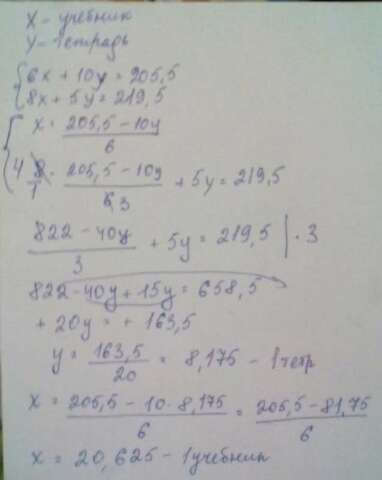 X - учебник
Y - 1 тетрадь
{6x + 10y = 205,5
{8x + 5y = 219,5
{x = (205,5 - 10y)/6
{4 8/1 · (205,5 - 10y)/6 3 + 5y = 219,5
(822 - 40y)/3 + 5y = 219,5 | · 3
822 - 40y + 15y = 658,5
+ 20y = + 163,5
y = 163,5/20 = 8,175 - 1 тетр
x = (205,5 - 10 · 8,175)/6 = (205,5 - 81,75)/6
x = 20,625 - 1 учебник